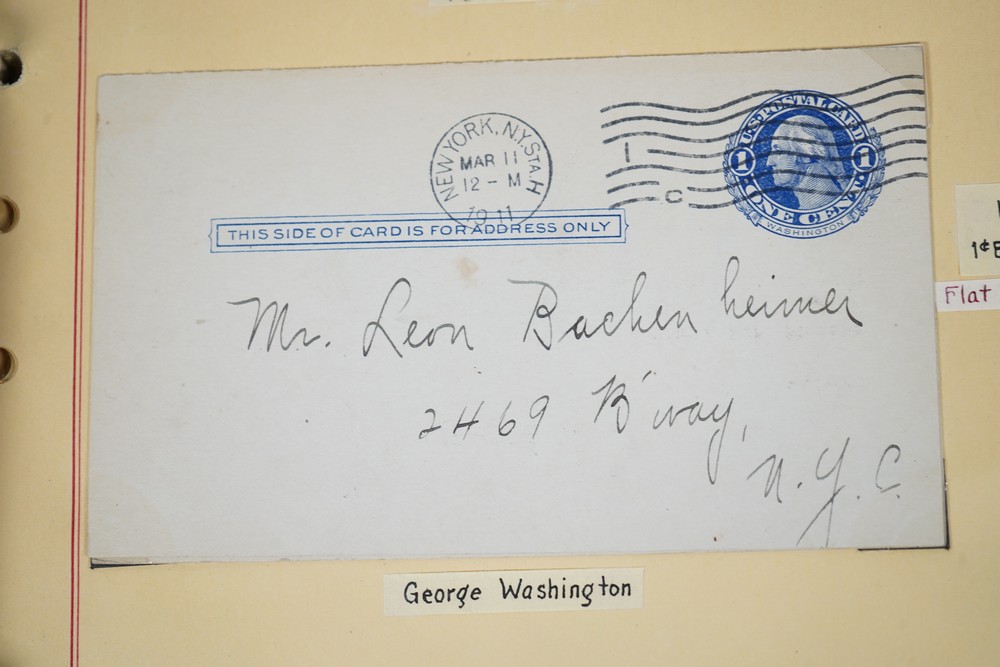 NEW YORK, N.Y. STA. H
MAR 11
12 – M
1911
1
C
U.S. POSTAL CARD
1 1
ONE CENT
WASHINGTON
THIS SIDE OF CARD IS FOR ADDRESS ONLY
Mr. Leon Bachenheimer
2469 B'way,
N.Y.C.
1¢
Flat
George Washington